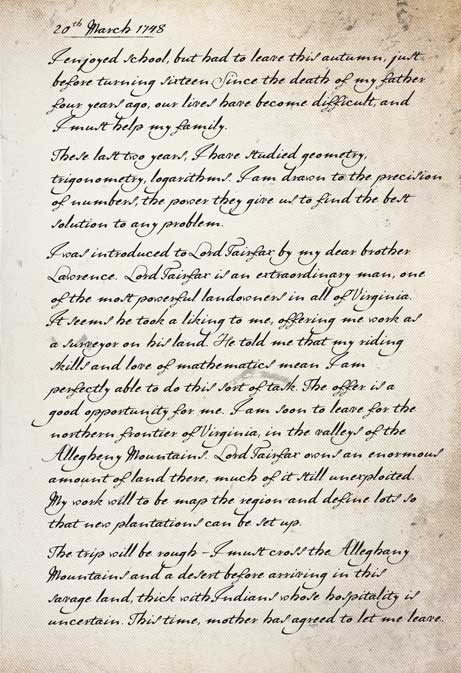 20th March 1748
I enjoyed school, but had to leave this autumn, just
before turning sixteen. Since the death of my father
four years ago, our lives have become difficult, and
I must help my family.
These last two years, I have studied geometry,
trigonometry, logarithms. I am drawn to the precision
of numbers, the power they give us to find the best
solution to any problem.
I was introduced to Lord Fairfax by my dear brother
Lawrence. Lord Fairfax is an extraordinary man, one
of the most powerful landowners in all of Virginia.
It seems he took a liking to me, offering me work as
a surveyor on his land. He told me that my riding
skills and love of mathematics mean I am
perfectly able to do this sort of task. The offer is a
good opportunity for me. I am soon to leave for the
northern frontier of Virginia, in the valleys of the
Allegheny Mountains. Lord Fairfax owns an enormous
amount of land there, much of it still unexploited.
My work will to be map the region and define lots so
that new plantations can be set up.
The trip will be rough – I must cross the Alleghany
Mountains and a desert before arriving in this
savage land, thick with Indians whose hospitality is
uncertain. This time, mother has agreed to let me leave.